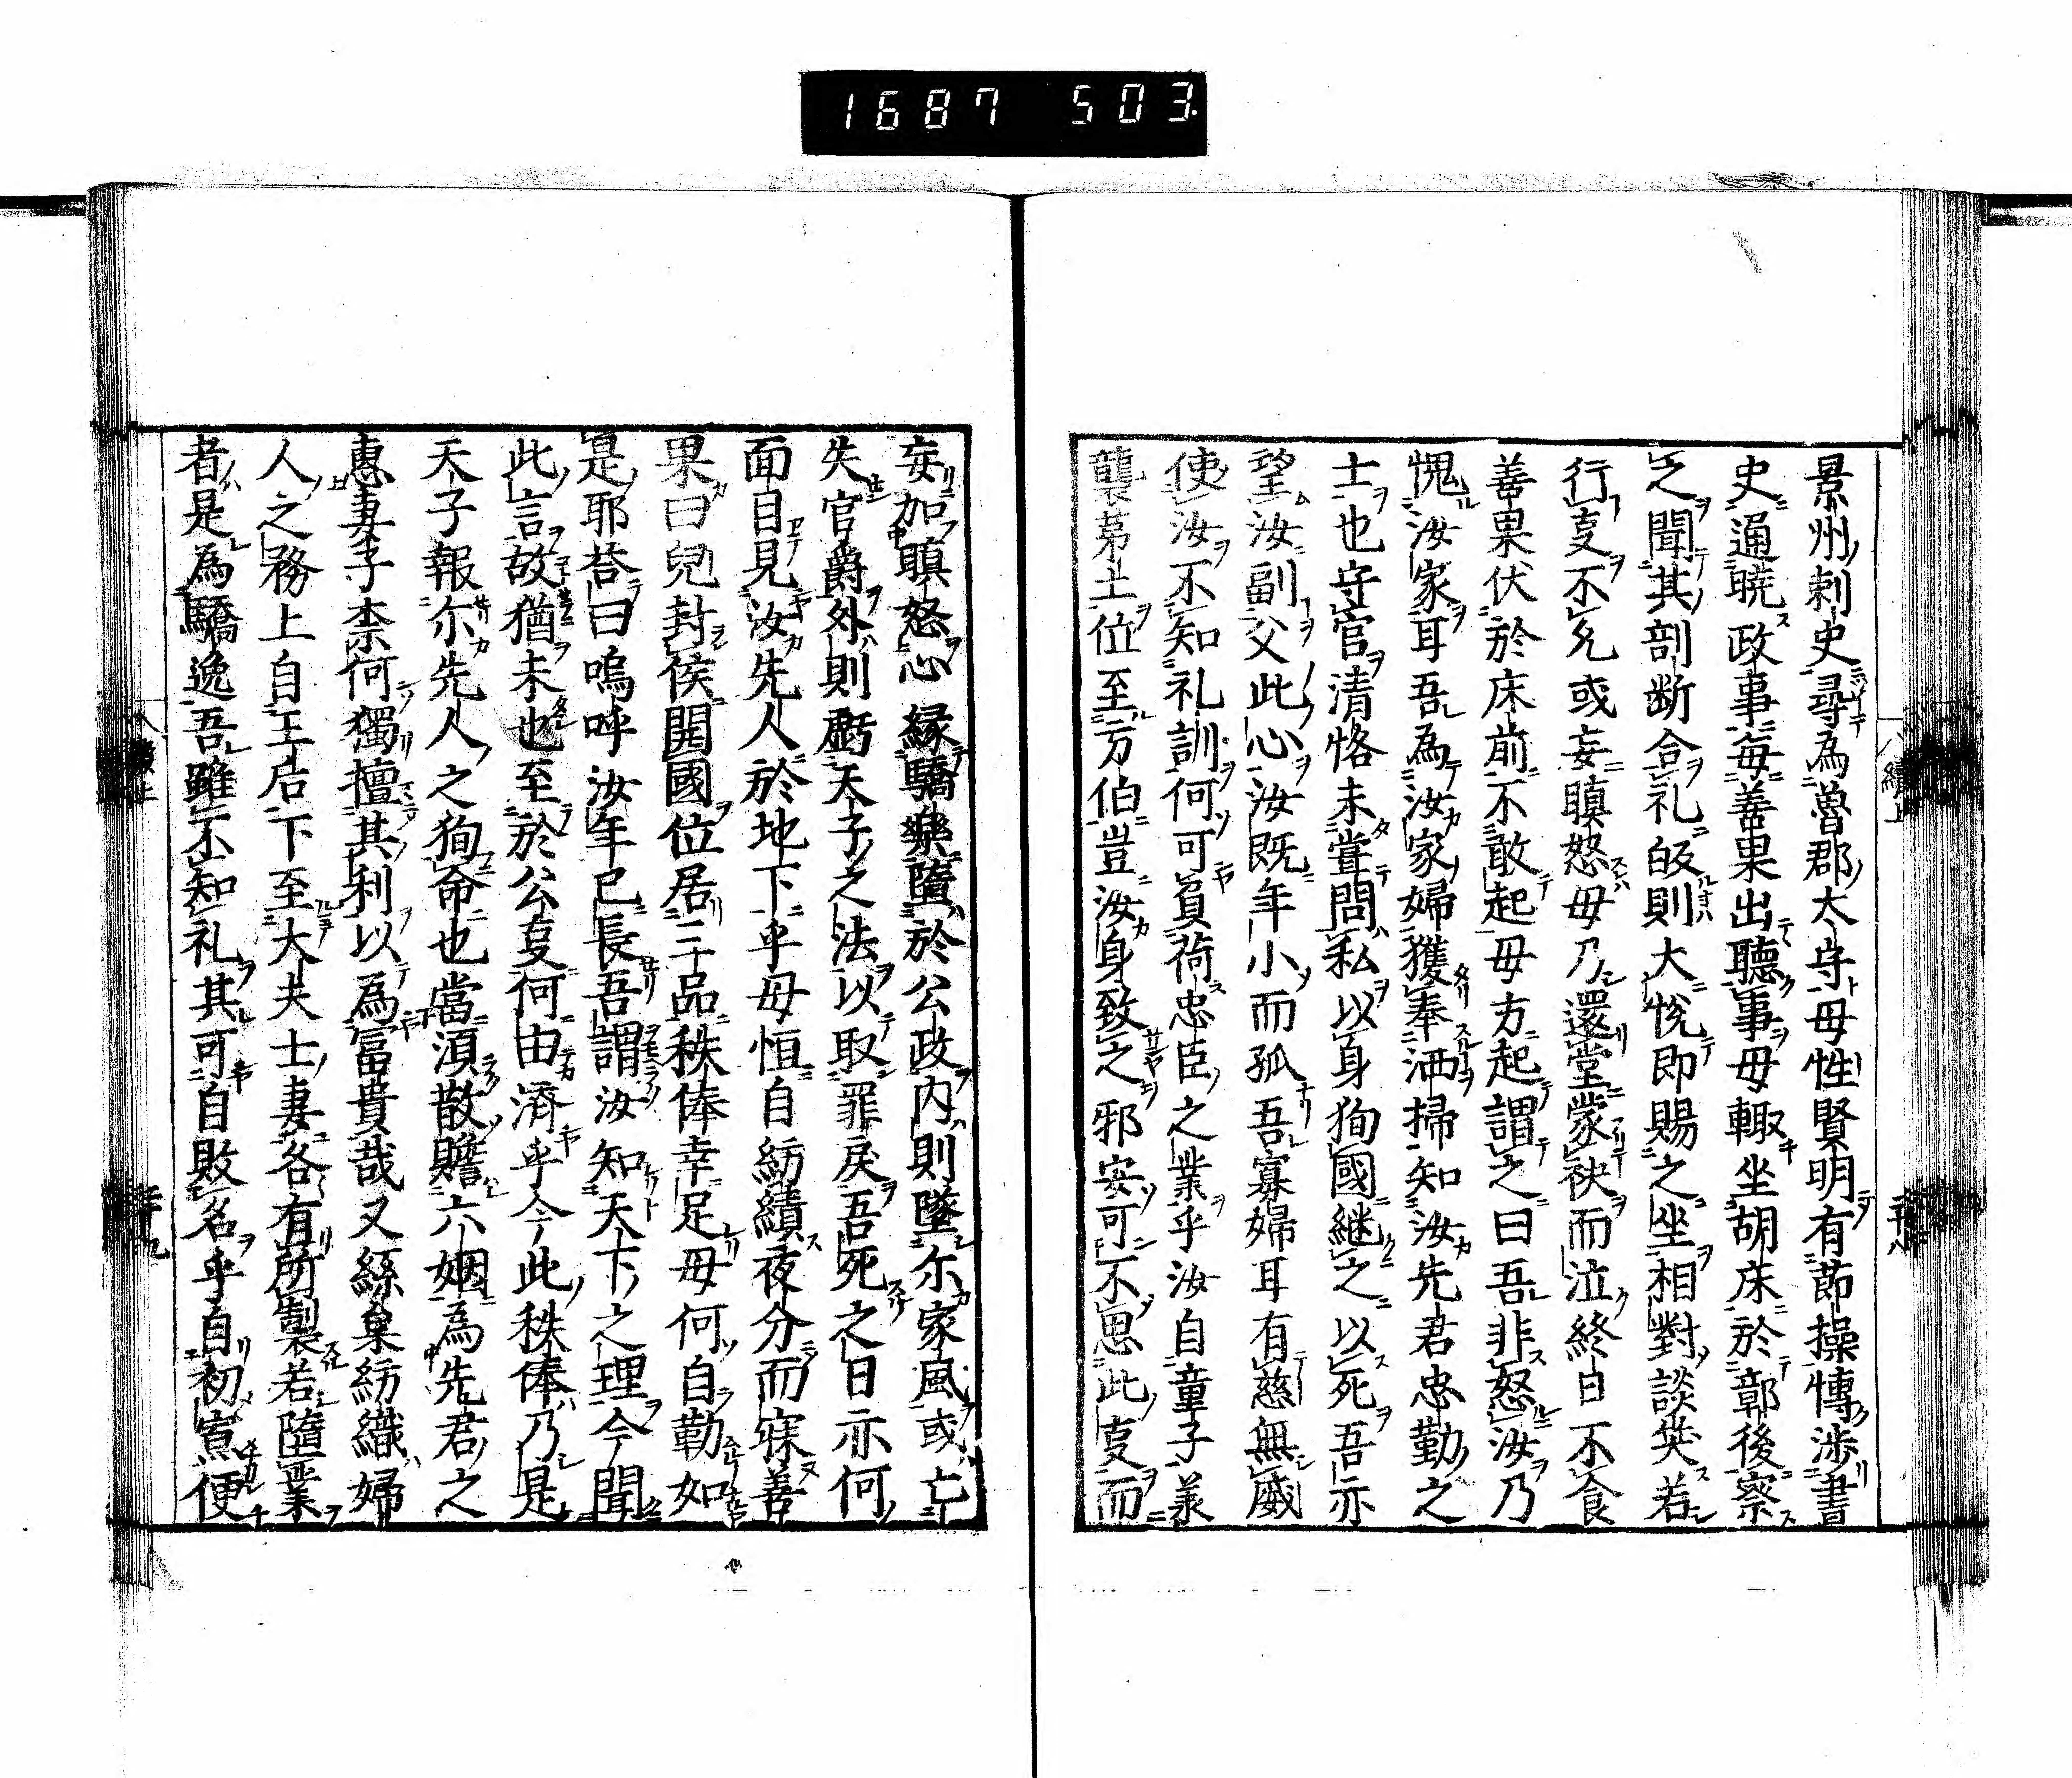 1687 503
景州刺史尋為魯郡太守母性賢明有節操慱渉書
史通暁政事毎善果出聴事母輙坐胡床於鄣後察
之聞其剖断合礼皈則大悦即賜之坐相對談笑若
行亊不允或妄瞋怒母乃還堂蒙袂而泣終日不食
善果伏於床前不敢起母方起謂之曰吾非怒汝乃
愧汝家耳吾為汝家婦獲奉洒掃知汝先君忠勤之
士也守官清恪未甞問私以身狥國継之以死吾亦
望汝副父此心汝既年小而孤吾寡婦耳有慈無威
使汝不知礼訓何可負荷忠臣之業乎汝自童子羕
襲茅土位至方伯豈汝身致之邪安可不思此亊而
妄加瞋怒心縁驕樂墮於公政内則墜尓家風或亡
失官爵外則虧天子之法以取罪戻吾死之日亦何
面目見汝先人於地下乎母恒自紡績夜分而寐善
果曰兒封侯開國位居三品秩俸幸足母何自勤如
是耶荅曰嗚呼汝年已長吾謂汝知天下之理今聞
此言故猶未也至於公亊何由濟乎今此秩俸乃是
天子報尓先人之狥命也當湏散贍六姻為先君之
惠妻子柰何獨擅其利以為冨貴哉又絲枲紡織婦
人之務上自王后下至大夫士妻各有所製若墮業
者是為驕逸吾雖不知礼其可自敗名乎自初寡便